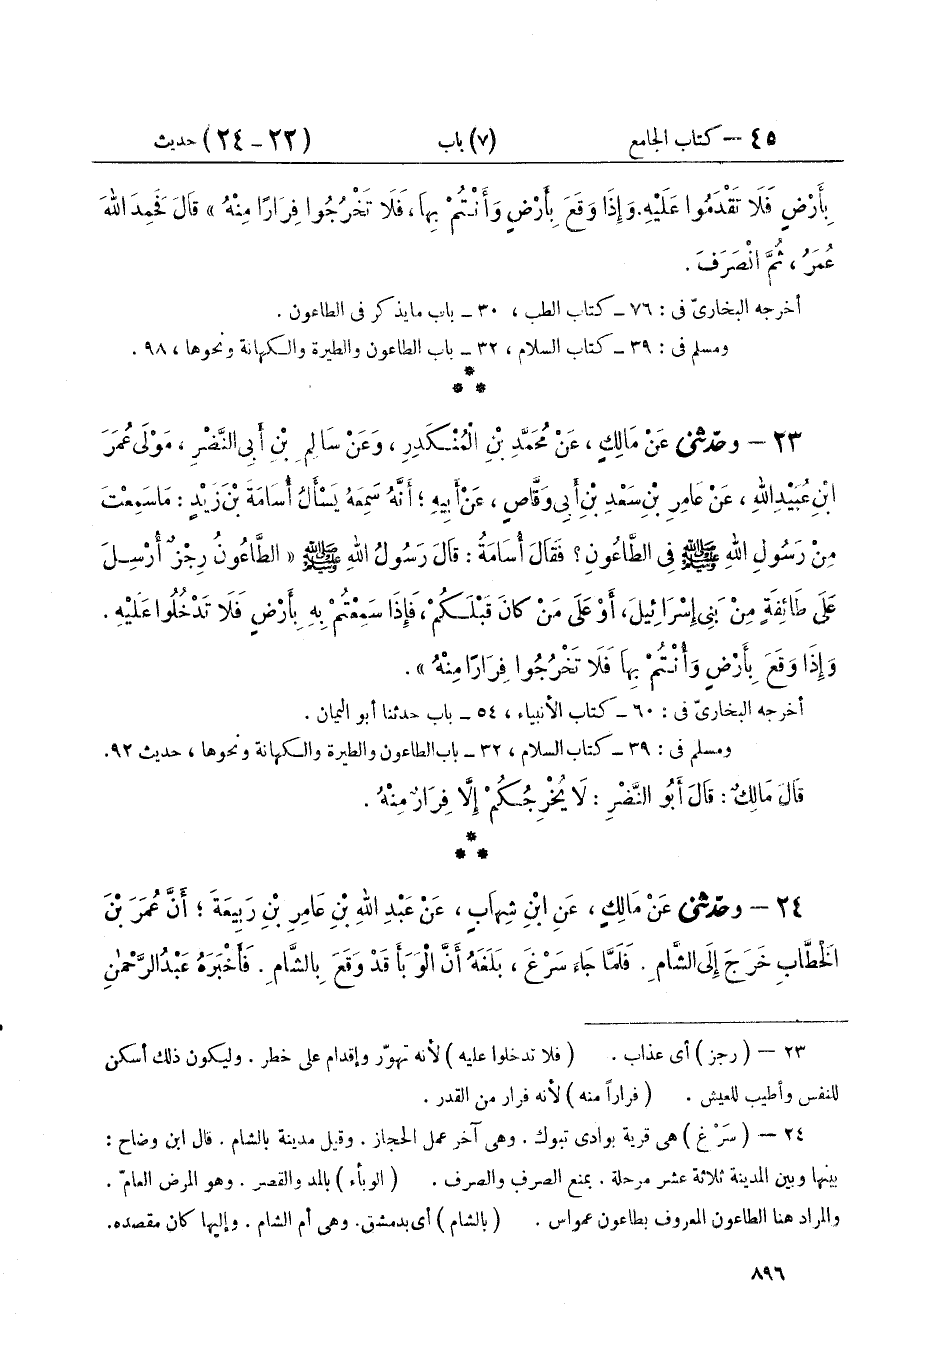 ٤٥ — كتاب الجامع (٧) باب (٢٣ - ٢٤) حديث
بِأَرْضٍ فَلَا تَقْدَمُوا عَلَيْهِ. وَإِذَا وَقَعَ بِأَرْضٍ وَأَنْتُمْ بِهَا، فَلَا تَخْرُجُوا فِرَارًا مِنْهُ » قَالَ فَحَمِدَ اللهَ
عُمَرُ، ثُمَّ انْصَرَفَ .
أخرجه البخارىّ فى : ٧٦ ـ كتاب الطب ، ٣٠ ـ باب ما يذكر فى الطاعون .
ومسلم فى : ٣٩ ـ كتاب السلام ، ٣٢ ـ باب الطاعون والطيرة والكهانة ونحوها ، ٩٨ .
***
٢٣ — وحدّثنى عَنْ مَالِكٍ ، عَنْ مُحَمَّدِ بْنِ الْمُنْكَدِرِ ، وَعَنْ سَالِمِ بْنِ أَبِى النَّضْرِ ، مَوْلَى عُمَرَ
ابْنِ عُبَيْدِ اللهِ ، عَنْ عَامِرِ بْنِ سَعْدِ بْنِ أَبِى وَقَّاصٍ ، عَنْ أَبِيهِ ؛ أَنَّهُ سَمِعَهُ يَسْأَلُ أُسَامَةَ بْنَ زَيْدٍ : مَا سَمِعْتَ
مِنْ رَسُولِ اللهِ ﷺ فِى الطَّاعُونِ ؟ فَقَالَ أُسَامَةُ : قَالَ رَسُولُ اللهِ ﷺ « الطَّاعُونُ رِجْزٌ أُرْسِلَ
عَلَى طَائِفَةٍ مِنْ بَنِى إِسْرَائِيلَ، أَوْ عَلَى مَنْ كَانَ قَبْلَكُمْ، فَإِذَا سَمِعْتُمْ بِهِ بِأَرْضٍ فَلَا تَدْخُلُوا عَلَيْهِ .
وَإِذَا وَقَعَ بِأَرْضٍ وَأَنْتُمْ بِهَا فَلَا تَخْرُجُوا فِرَارًا مِنْهُ » .
أخرجه البخارىّ فى : ٦٠ ـ كتاب الأنبياء ، ٥٤ ـ باب حدثنا أبو اليمان .
ومسلم فى : ٣٩ ـ كتاب السلام ، ٣٢ ـ باب الطاعون والطيرة والكهانة ونحوها ، حديث ٩٢.
قَالَ مَالِكٌ : قَالَ أَبُو النَّضْرِ : لَا يُخْرِجُكُمْ إِلَّا فِرَارٌ مِنْهُ .
***
٢٤ — وحدّثنى عَنْ مَالِكٍ ، عَنِ ابْنِ شِهَابٍ ، عَنْ عَبْدِ اللهِ بْنِ عَامِرِ بْنِ رَبِيعَةَ ؛ أَنَّ عُمَرَ بْنَ
الْخَطَّابِ خَرَجَ إِلَى الشَّامِ . فَلَمَّا جَاءَ سَرْغَ ، بَلَغَهُ أَنَّ الْوَبَأَ قَدْ وَقَعَ بِالشَّامِ . فَأَخْبَرَهُ عَبْدُ الرَّحْمٰنِ
٢٣ — ( رجز ) أى عذاب . ( فلا تدخلوا عليه ) لأنه تهوّر وإقدام على خطر . وليكون ذلك أسكن
للنفس وأطيب للعيش . ( فراراً منه ) لأنه فرار من القدر .
٢٤ — ( سَرْغ ) هى قرية بوادى تبوك . وهى آخر عمل الحجاز . وقيل مدينة بالشام . قال ابن وضاح :
بينها وبين المدينة ثلاثة عشر مرحلة . بمنع الصرف والصرف . ( الوبأء ) بالمد والقصر . وهو المرض العامّ .
والمراد هنا الطاعون المعروف بطاعون عمواس . ( بالشام ) أى بدمشق. وهى أم الشام . وإليها كان مقصده.
٨٩٦